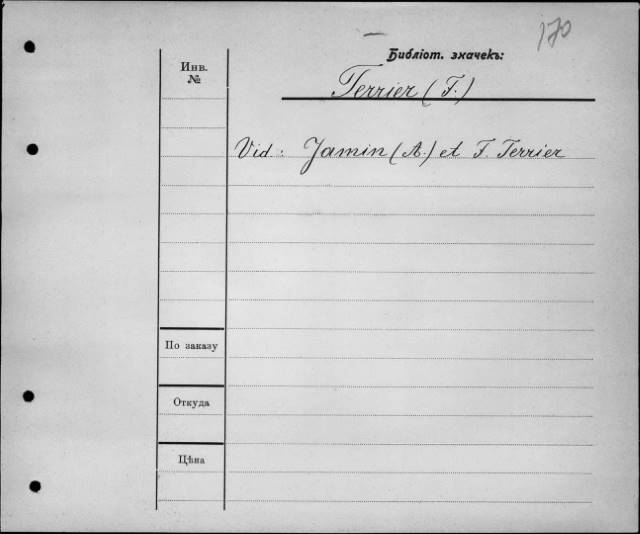 170
Библіот. значекъ:
Инв.
№
Terrier (F.)
Vid.: Jamin (A.) et F. Terrier
По заказу
Откуда
Цѣна